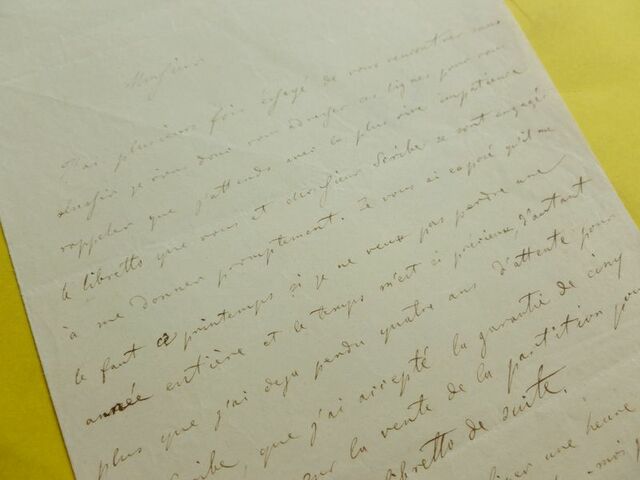 Monsieur
J'ai plusieurs fois essayé de vous rencontrer sans
réussir je viens donc vous adresser ces lignes pour vous
rappeler que j'attends avec la plus vive impatience
le libretto que vous et Monsieur Scribe se sont engagés
à me donner promptement. Je vous ai exposé qu'il me
le faut ce printemps si je ne veux pas perdre une
année entière et le temps m'est si précieux, d'autant
plus que j'ai deja perdu quatre ans d'attente pour
Scribe, que j'ai accepté la garantie de cinq
sur la vente de la partition pour
libretto de suite.
une heure